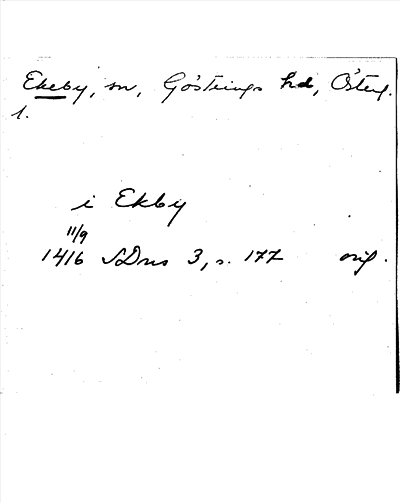 Ekeby, sn, Göstrings hd, Österg.
1.
i Ekby
11/9
1416 SDns 3, s. 177 orig.